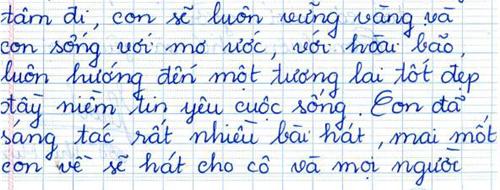 tâm đi, con sẽ luôn vững vàng và
con sống với mơ ước, với hoài bão,
luôn hướng đến một tương lai tốt đẹp
đầy niềm tin yêu cuộc sống. Con đã
sáng tác rất nhiều bài hát, mai mốt
con về sẽ hát cho cô và mọi người